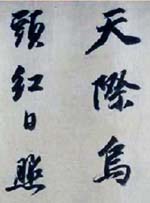 天際烏
頭紅日照